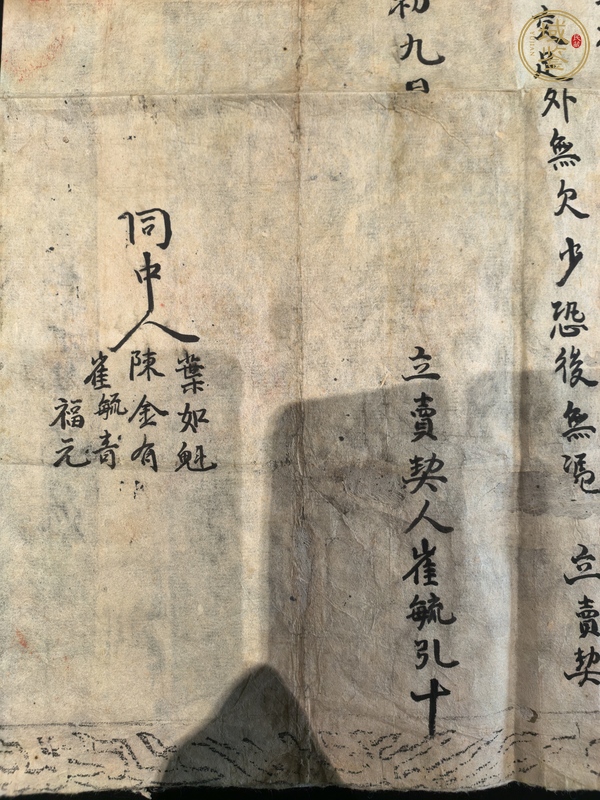 交足外無欠少恐後無憑 立賣契
初九日
立賣契人崔毓引十
同中人
葉如魁
陳金有
崔毓青
福元